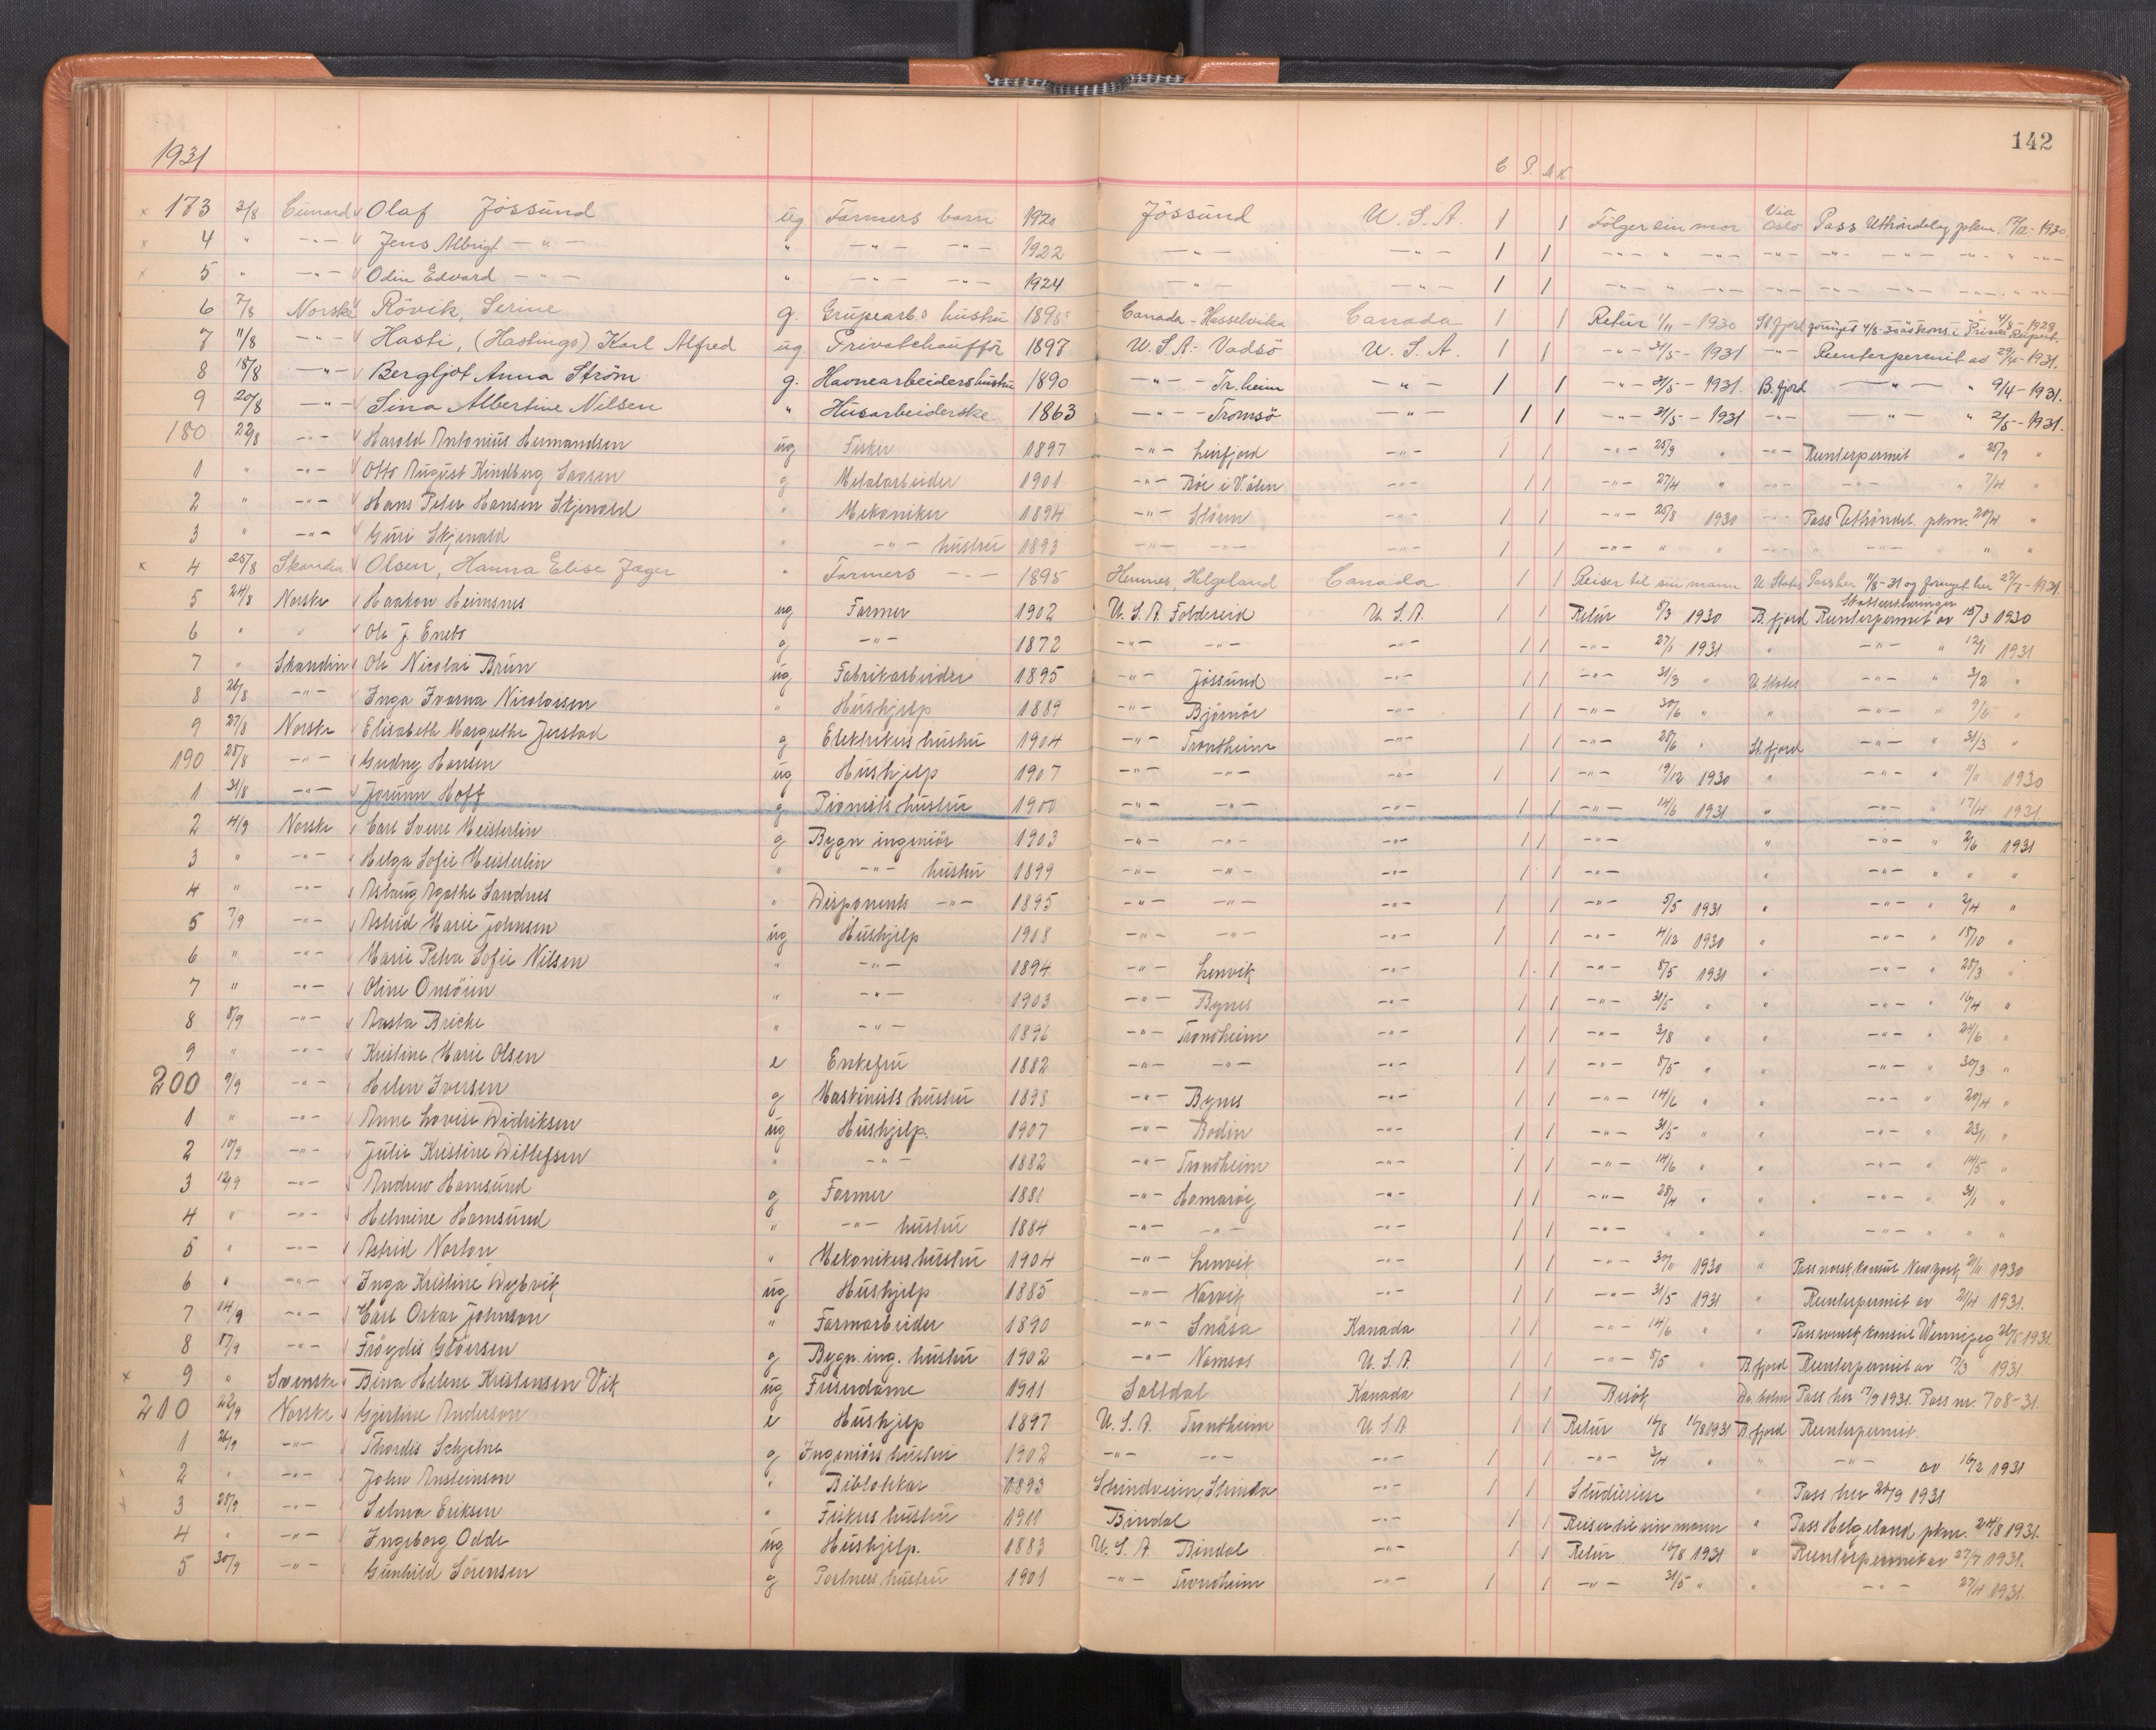 142
1931
C P. M K.
× 173 3/8 Cunard Olaf Jössund ug Farmers barn 1920 Jössund U.S.A. 1 1 Fölger sin mor Via Oslo Pass Uthröndelag pkm. 17/12-1930.
× 4 " -"- Jens Albrigt -"- " -"- -"- 1922 -"- -"- 1 1 -"- " -"- -"- -"- -"- -"- " -"-
× 5 " -"- Odin Edvard -"- " -"- -"- 1924 -"- -"- 1 1 -"- " -"- -"- -"- -"- -"- " -"-
6 7/8 Norske Rövik, Serine g. Grupearb.s hustru 1895 Canada - Hasselvika Canada 1 1 Retur 1/11 - 1930 St.fjord 4/8-1928
7 11/8 -"- Hasti, (Hastings) Karl Alfred ug Privatchaufför 1897 U.S.A. - Vadsö U.S.A. 1 1 -"- 31/5 - 1931 -"- Reenterpermit av 29/4-1931.
8 18/8 -"- Bergljot Anna Ström g. Havnearbeiders hustru 1890 -"- - Tr.heim -"- 1 1 -"- 31/5 - 1931. B.fjord -"- " 9/4-1931.
9 20/8 -"- Sina Albertine Nilsen " Husarbeiderske 1863 -"- - Tromsö -"- 1 1 -"- 31/5 - 1931 -"- -"- " 2/5-1931.
180 22/8 -"- Harald Antonius Hermandsen ug Fisker 1897 -"- Leirfjord -"- 1 1 -"- 25/9 " -"- Reenterpermit " 25/9 "
1 " -"- Otto August Kindberg Larsen g Metalarbeider 1901 -"- Böe i V.ålen -"- 1 1 -"- 27/4 " -"- -"- " 7/4 "
2 " -"- Hans Peter Hansen Skjevold " Mekaniker 1894 -"- Stören -"- 1 1 -"- 25/8 1930 -"- Pass Uthröndel. pkm. 20/4 "
3 " -"- Guri Skjevold " -"- hustru 1893 -"- -"- -"- 1 1 -"- " " -"- " -"- " " "
× 4 25/8 Skandin. Olsen, Hanna Elise Jæger " Farmers -"- 1895 Hemnes, Helgeland Canada 1 1 Reiser til sin mann U. States Pass her 11/8-31 og fornyet her 27/7-1931.
5 24/8 Norske Haakon Heimsnes ug Farmer 1902 U.S.A. Foldereid U.S.A. 1 1 Retur 8/3 1930 B.fjord Reenterpermit av 15/3 1930
6 " " Ole J. Enebo g -"- 1872 -"- -"- -"- 1 1 -"- 27/1 1931 " -"- " 12/1 1931
7 " Skandin Ole Nicolai Brun ug Fabrikarbeider 1895 -"- Jössund -"- 1 1 -"- 31/3 " U States -"- " 3/2 "
8 26/8 -"- Inga Ivarna Nicolaisen " Hushjelp 1889 -"- Björnör -"- 1 1 -"- 30/6 " " -"- " 9/6 "
9 27/8 Norske Elisabeth Margrethe Jerstad g Elektrikers hustru 1904 -"- Trondheim -"- 1 1 -"- 28/6 " St.fjord -"- " 31/3 "
190 28/8 -"- Gudny Hansen ug Hushjelp 1907 -"- -"- -"- 1 1 -"- 19/12 1930 " -"- " 11/11 1930
1 31/8 -"- Jorunn Hoff g Pianists hustru 1900 -"- -"- -"- 1 1 -"- 14/6 1931 " -"- " 17/4 1931
2 4/9 Norske Carl Sverre Meisterlin g Bygn ingeniör 1903 -"- -"- -"- 1 1 -"- " -"- " 2/6 1931
3 " -"- Helga Sofie Meisterlin " -"- hustru 1899 -"- -"- -"- 1 1 -"- " -"- " " "
4 " -"- Aslaug Agathe Sandnes " Disponents -"- 1895 -"- -"- -"- 1 1 -"- 5/5 1931 " -"- " 2/4 "
5 7/9 Astrid Marie Johnsen ug Hushjelp 1908 -"- -"- -"- 1 1 -"- 4/12 1930 " -"- " 18/10 "
6 " -"- Marie Petra Sofie Nilsen " -"- 1894 -"- Lenvik -"- 1 1 -"- 8/5 1931 " -"- " 28/3 "
7 " -"- Oline Onsöien " -"- 1903 -"- Bynes -"- 1 1 -"- 31/5 " " -"- " 16/4 "
8 8/9 -"- Aasta Bricke " -"- 1896 -"- Trondheim -"- 1 1 -"- 3/8 " " -"- " 24/6 "
9 " -"- Kristine Marie Olsen e Enkefru 1882 -"- -"- -"- 1 1 -"- 8/5 " " -"- " 30/3 "
200 9/9 -"- Helen Iversen g Maskinists hustru 1898 -"- Bynes -"- 1 1 -"- 14/6 " " -"- " 20/4 "
1 " -"- Anne Lovise Didriksen ug Hushjelp. 1907 -"- Bodin -"- 1 1 -"- 31/5 " " -"- " 23/1 "
2 10/9 -"- Julie Kristine Ditlefsen " -"- 1882 -"- Trondheim -"- 1 1 -"- 14/6 " " -"- " 14/5 "
3 12/9 -"- Andrew Hamsund g Farmer 1881 -"- Hamaröy -"- 1 1 -"- 28/4 " " -"- " 31/1 "
4 " -"- Helmine Hamsund " -"- hustru 1884 -"- -"- -"- 1 1 -"- " " " -"- " " "
5 " -"- Astrid Norton " Mekanikers hustru 1904 -"- Lenvik -"- 1 1 -"- 1930 " Pass norsk konsul New York 2/11 1930
6 " -"- Inga Kristine Dybvik ug Hushjelp 1885 -"- Narvik -"- 1 1 -"- 31/5 1931 " Reenterpermit av 21/4 1931.
7 14/9 -"- Carl Oskar Johnson " Farmarbeider 1890 -"- Snåsa Kanada 1 1 -"- 14/6 " " Pass svensk konsul Winnipeg 26/5 1931.
8 17/9 -"- Fröydis Glöersen g Bygn.ing. hustru 1902 -"- Namsos U.S.A. 1 1 -"- 8/5 " B.fjord Reenterpermit av 17/3 1931.
× 9 " Svenske Bina Helene Kristensen Vik ug Friserdame 1911 Saltdal Kanada 1 1 Besök Pass her 7/9 1931. Pass nr. 708-31.
210 22/9 Norske Gjertine Anderson e Hushjelp 1897 U.S.A. Trondheim U.S.A 1 1 Retur 16/8 1931 B.fjord Reenterpermit.
1 26/9 -"- Thordis Schjelne g Ingeniörs hustru 1902 -"- -"- -"- 1 1 -"- 3/4 " " -"- av 16/2 1931
× 2 " -"- John Ansteinson " Bibliotekar 1893 Strindheim, Strinda -"- 1 1 Studiereise " Pass her 26/9 1931
× 3 28/9 -"- Selma Eriksen " Fiskers hustru 1911 Bindal -"- 1 1 Reiser til sin mann " Pass Helgeland pkm. 24/8 1931.
4 " -"- Ingeborg Odde ug Hushjelp. 1883 U.S.A. Bindal -"- 1 1 Retur 16/8 1931 " Reenterpermit av 27/7 1931.
5 30/9 -"- Gunhild Sörensen g Portners hustru 1901 -"- Trondheim -"- 1 1 -"- 31/5 " " -"- 27/4 1931.